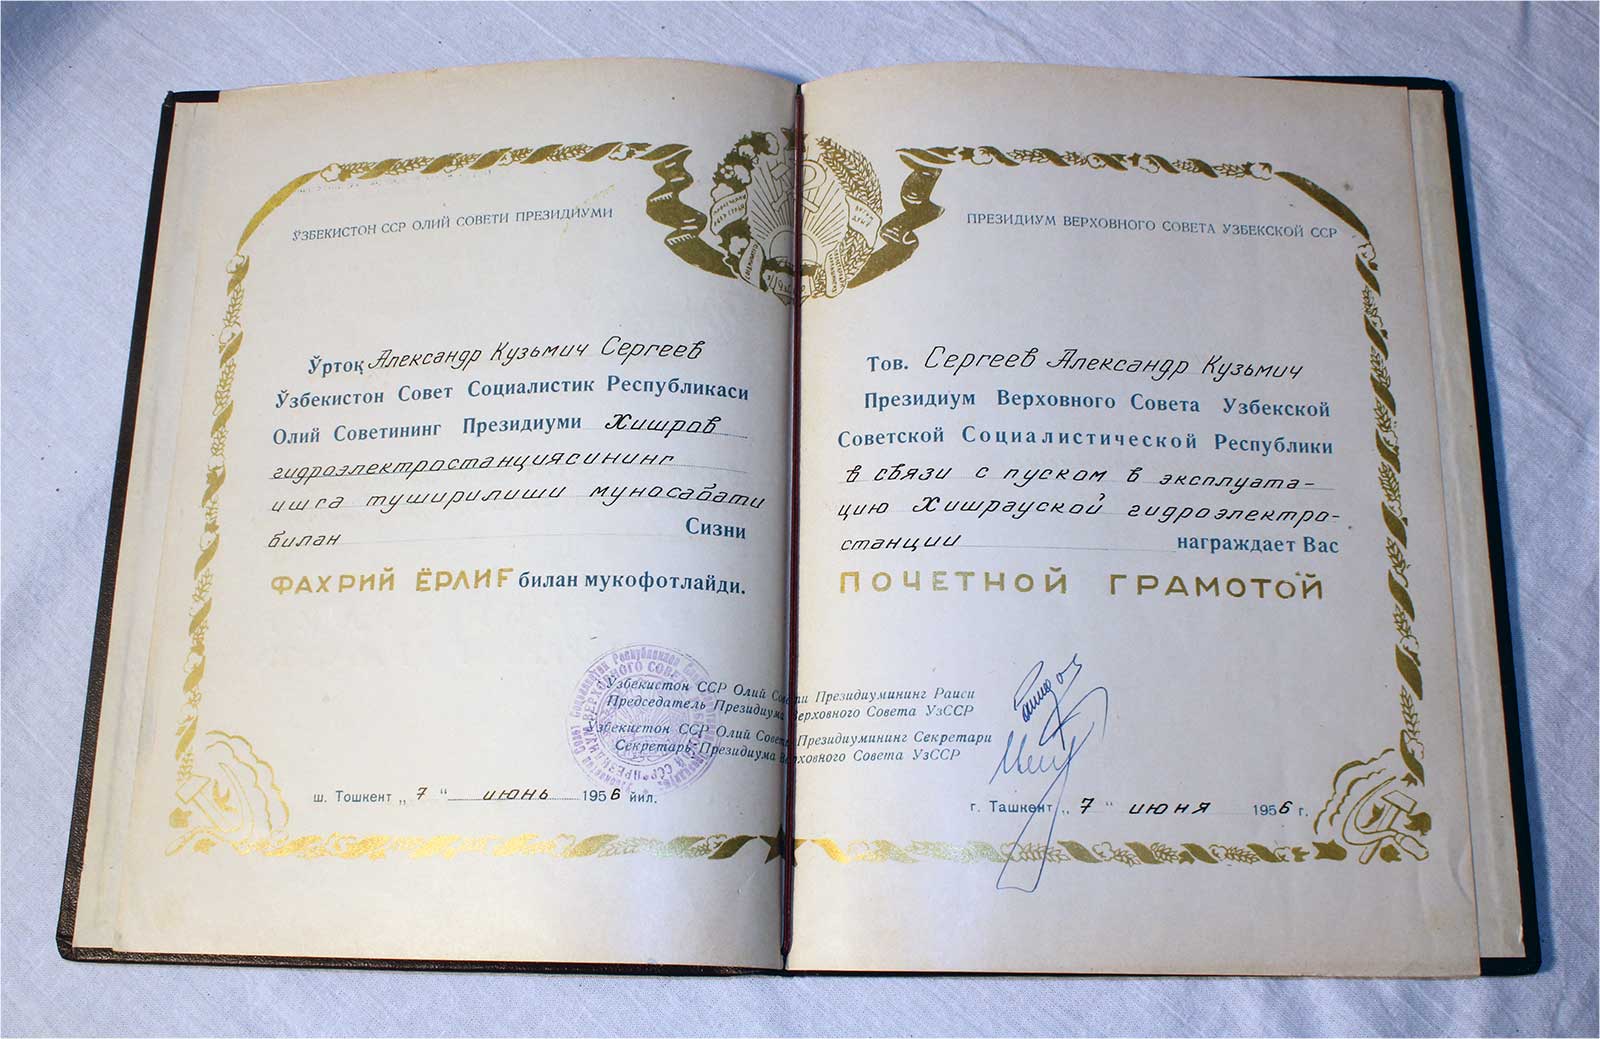 ЎЗБЕКИСТОН ССР ОЛИЙ СОВЕТИ ПРЕЗИДИУМИ
Ўртоқ Александр Кузьмич Сергеев
Ўзбекистон Совет Социалистик Республикаси
Олий Советининг Президиуми Хишров
гидроэлектростанциясининг
ишга туширилиши муносабати
билан Сизни
ФАХРИЙ ЁРЛИҒ билан мукофотлайди.
ш. Тошкент „7“ июнь 1956 йил.
ПРЕЗИДИУМ ВЕРХОВНОГО СОВЕТА УЗБЕКСКОЙ ССР
Тов. Сергеев Александр Кузьмич
Президиум Верховного Совета Узбекской
Советской Социалистической Республики
в связи с пуском в эксплуата-
цию Хишрауской гидроэлектро-
станции награждает Вас
ПОЧЕТНОЙ ГРАМОТОЙ
Ўзбекистон ССР Олий Совети Президиумининг Раиси
Председатель Президиума Верховного Совета УзССР
Ўзбекистон ССР Олий Совети Президиумининг Секретари
Секретарь Президиума Верховного Совета УзССР
г. Ташкент „7“ июня 1956 г.